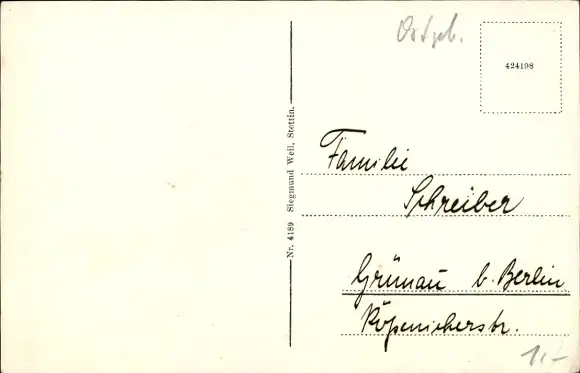 Ostgeb.
424198
Nr. 4189 Siegmund Weil, Stettin.
Familie
Schreiber
Grünau b. Berlin
Köpenickerstr.
1,-